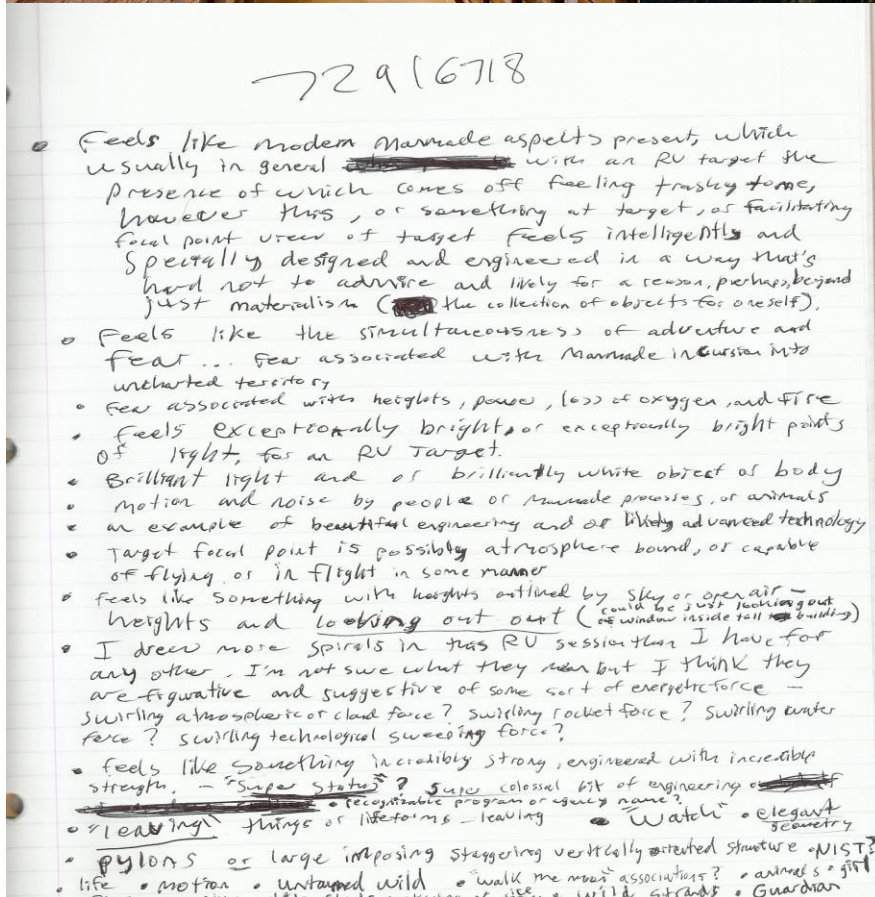 72916718
• Feels like modern manmade aspects present, which
usually in general with an RV target the
presence of which comes off feeling trashy to me,
however this, or something at target, or facilitating
focal point view of target feels intelligently and
specially designed and engineered in a way that's
hard not to admire and likely for a reason, perhaps, beyond
just materialism (the collection of objects for oneself).
• Feels like the simultaneousness of adventure and
fear... Fear associated with manmade incursion into
uncharted territory
• Fear associated with heights, power, loss of oxygen, and fire
• feels exceptionally bright, or exceptionally bright points
of light, for an RV Target.
• Brilliant light and or brilliantly white object or body
• motion and noise by people or manmade processes, or animals
• an example of beautiful engineering and or likely advanced technology
• Target focal point is possibly atmosphere bound, or capable
of flying or in flight in some manner
• feels like something with heights outlined by sky or open air –
heights and looking out out (could be just looking out
of window inside tall building)
• I drew more spirals in this RV session than I have for
any other. I'm not sure what they mean but I think they
are figurative and suggestive of some sort of energetic force –
swirling atmospheric or cloud force? swirling rocket force? swirling water
force? swirling technological sweeping force?
• feels like something incredibly strong, engineered with incredible
strength. – "Super Status"? Super colossal bit of engineering
• recognizable program or agency name?
• "leaving" things or lifeforms – leaving • "Watch" • elegant
geometry
• pylons or large imposing staggering vertically oriented structure • NIST?
• life • motion • untamed wild • "walk the moon" associations? • animals • girl
ice wild strands • Guardian